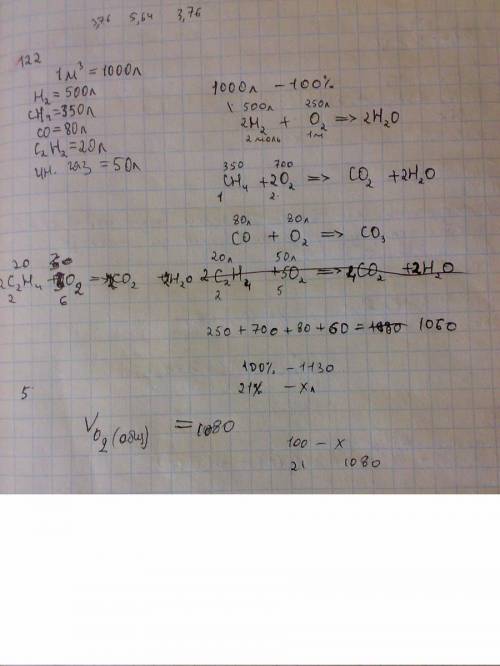 3,76 5,64 3,76
122
1 м³ = 1000л
H₂ = 500л
CH₄ = 350л
CO = 80л
C₂H₂ = 20л
ин. газ = 50л
1000л – 100%
500л 250л
2H₂ + O₂ => 2H₂O
2 моль 1м
350 700
CH₄ + 2O₂ => CO₂ + 2H₂O
1 2
80л 80л
CO + O₂ => CO₃
20 20л 50л
2C₂H₄ O₂ => CO₂ 2H₂O 2C₂H₄ + 5O₂ => 4CO₂ + 2H₂O
2 6 2 5
250 + 700 + 80 + 60 = 1060
100% – 1130
21% – xл
5
V O₂ (общ) = 1080
100 – x
21 1080